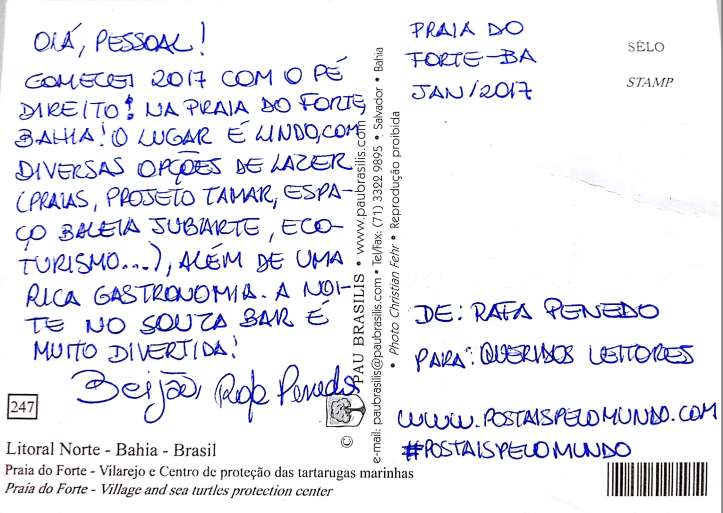 OLÁ, PESSOAL!
COMECEI 2017 COM O PÉ
DIREITO! NA PRAIA DO FORTE,
BAHIA! O LUGAR É LINDO, COM
DIVERSAS OPÇÕES DE LAZER
(PRAIAS, PROJETO TAMAR, ESPA-
ÇO BALEIA JUBARTE, ECO-
TURISMO...), ALÉM DE UMA
RICA GASTRONOMIA. A NOI-
TE NO SOUZA BAR É
MUITO DIVERTIDA!
Beijão, Rafa Penedo
247
Litoral Norte - Bahia - Brasil
Praia do Forte - Vilarejo e Centro de proteção das tartarugas marinhas
Praia do Forte - Village and sea turtles protection center
© PAU BRASILIS • www.paubrasilis.com
e-mail: paubrasilis@paubrasilis.com • Tel/fax: (71) 3322 9895 • Salvador • Bahia
• Photo Christian Fehr • Reprodução proibida
PRAIA DO
FORTE-BA
JAN/2017
SÊLO
STAMP
DE: RAFA PENEDO
PARA: QUERIDOS LEITORES
WWW.POSTAISPELOMUNDO.COM
#POSTAISPELOMUNDO